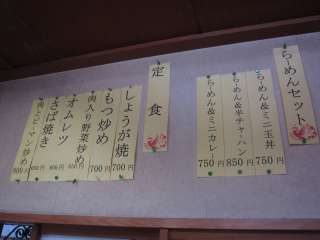 らーめんセット
らーめん&ミニ玉丼
750円
らーめん&半チャーハン
850円
らーめん&ミニカレー
750円
定食
しょうが焼
700円
もつ炒め
700円
肉入り野菜炒め
オムレツ
さば焼き
肉とピーマン炒め
800円